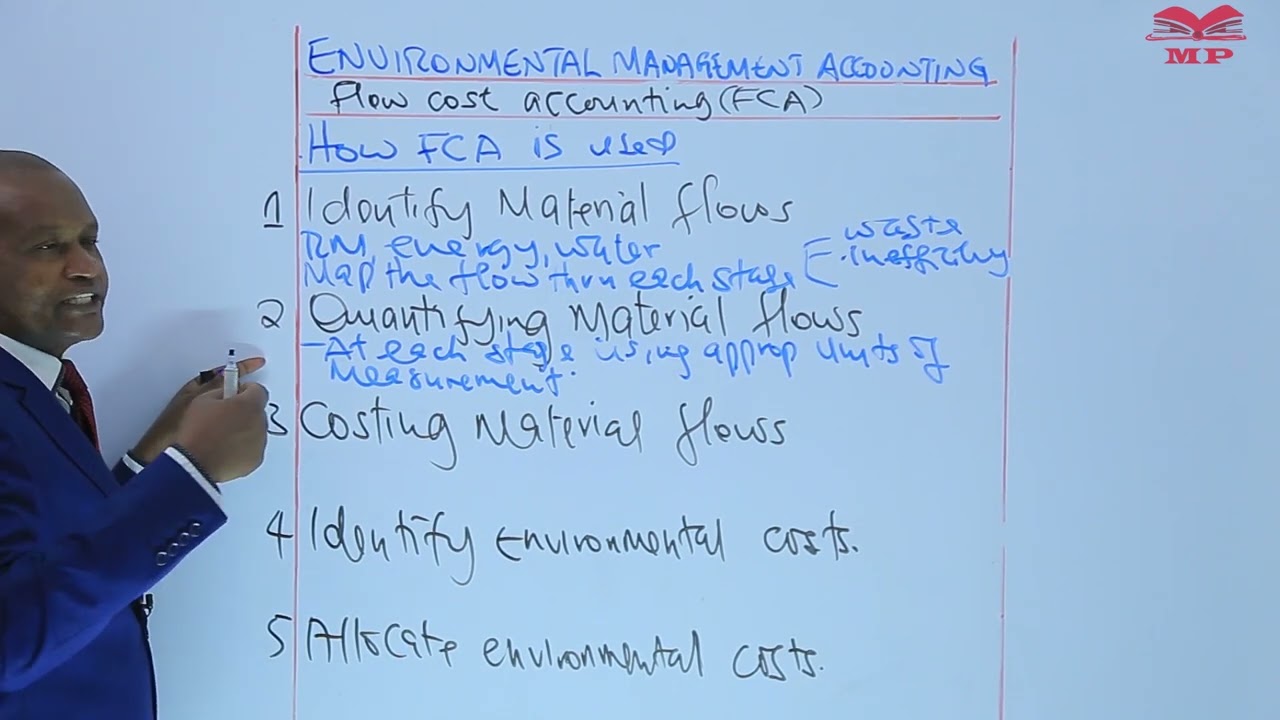 MP
ENVIRONMENTAL MANAGEMENT ACCOUNTING
flow cost accounting (FCA)
How FCA is used
1 Identify Material flows
RM, energy, water
Map the flow thru each stage [ waste
· inefficiency
2 Quantifying Material flows
- At each stage using approp units of
measurement.
3 Costing Material flows
4 Identify environmental costs.
5 Allocate environmental costs.